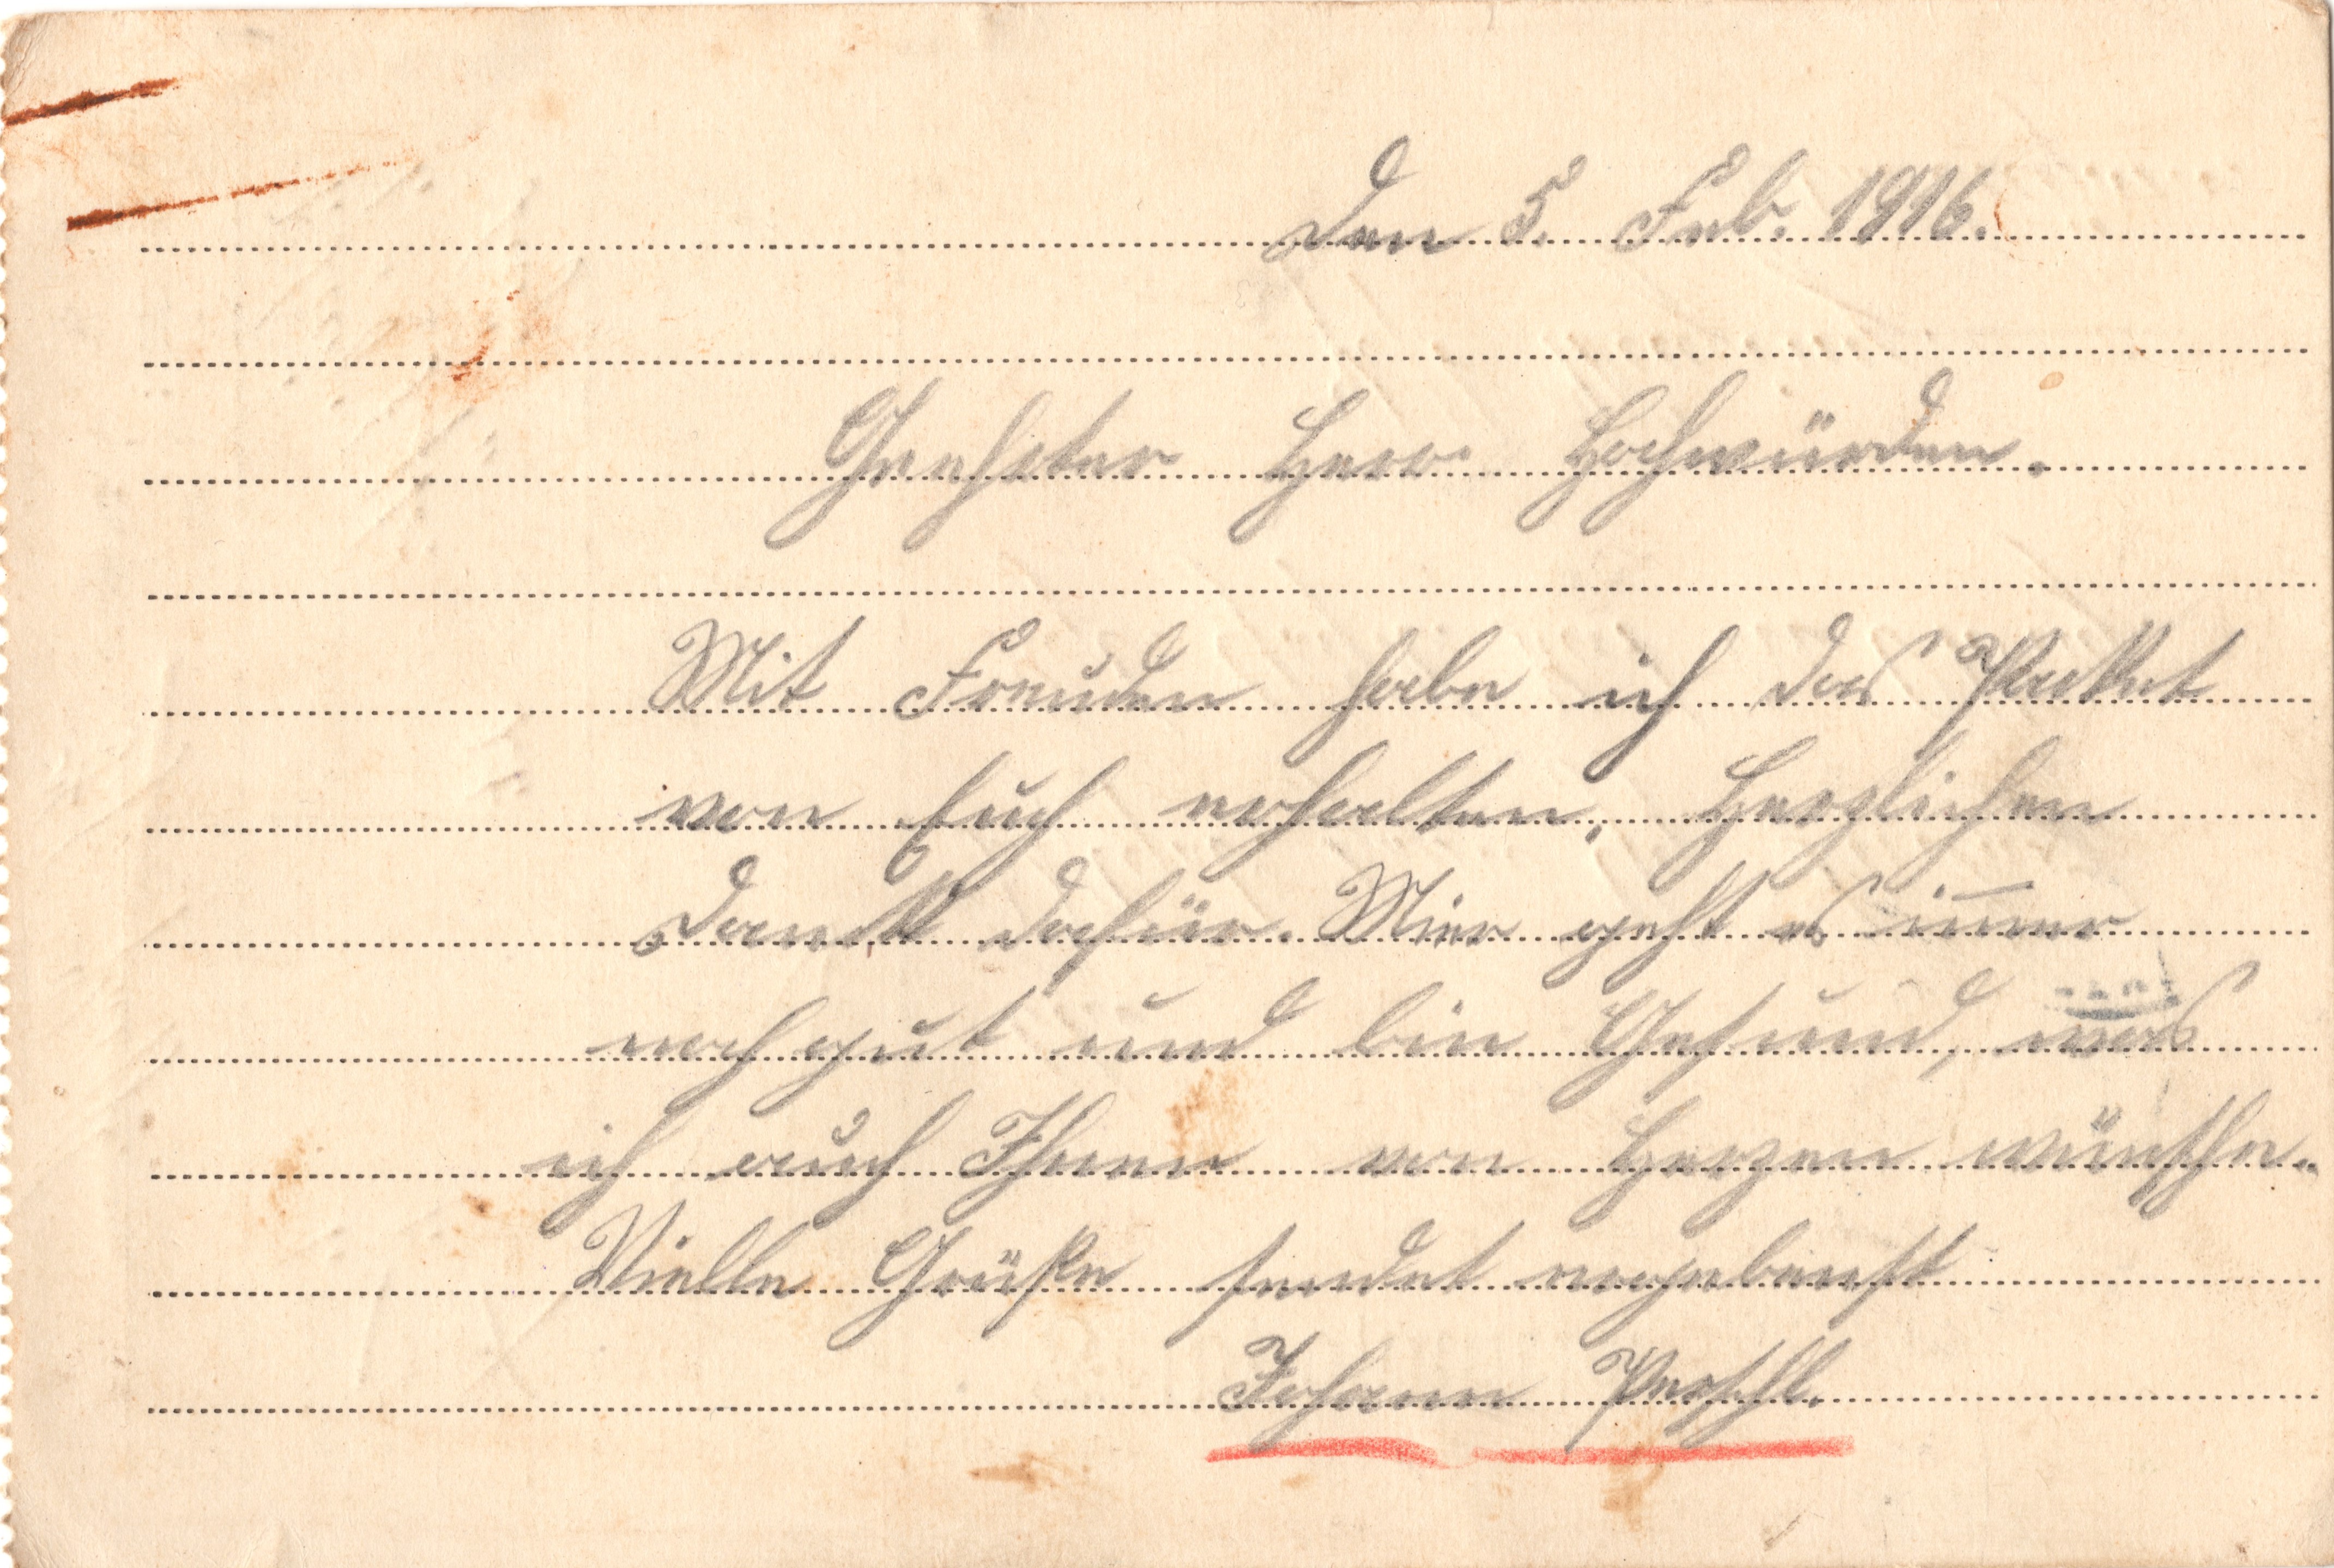 Den 5. Feb. 1916.
Geehrter Herr Hochwürden.
Mit Freuden habe ich das Paket
von Euch erhalten, Herzlichen
Dank dafür. Mier geht es im̅er
noch gut und bin Gesund, was
ich auch Ihnen von Herzen wünsche.
Vielle Grüße sendet ergebenst
Johann Perschl.